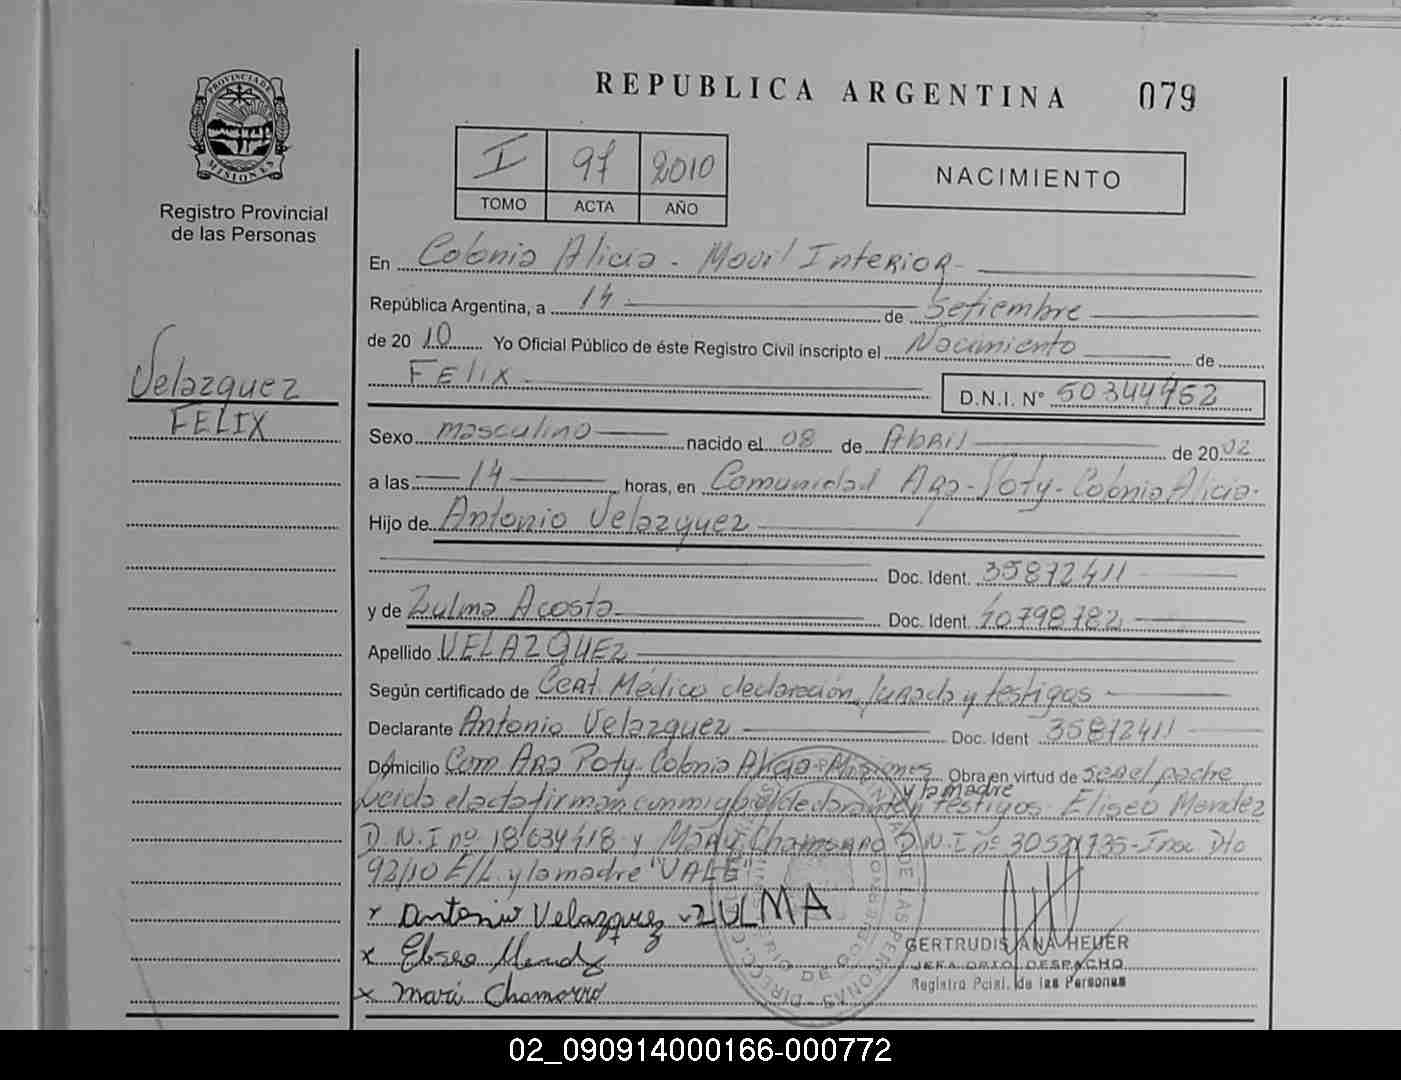 REPUBLICA ARGENTINA 079
PROVINCIA DE
MISIONES
Registro Provincial
de las Personas
I 97 2010
TOMO ACTA AÑO
NACIMIENTO
En Colonia Alicia - Movil Interior -
República Argentina, a 14 de Setiembre
de 2010 Yo Oficial Público de éste Registro Civil inscripto el Nacimiento de
Felix D.N.I. N° 50344452
Velazquez
FELIX
Sexo masculino nacido el 08 de Abril de 2002
a las 14 horas, en Comunidad Ara-Poty-Colonia Alicia-
Hijo de Antonio Velazquez
Doc. Ident. 35872411
y de Zulma Acosta Doc. Ident. 40798782
Apellido VELAZQUEZ
Según certificado de Cert Médico declaración Jurada y testigos
Declarante Antonio Velazquez Doc. Ident 35872411
Domicilio Com Ara Poty Colonia Alicia-Misiones Obra en virtud de ser el padre
y la madre
Leida el acta firman conmigo el declarante y testigos Eliseo Mendez
D.N.I nº 18634418 y Mary Chamorro D.N.I nº Insc Dto
92/10 E/L y la madre "VALE"
x Antonio Velazquez ZULMA
x Eliseo Mendez
x Mari Chamorro
GERTRUDIS ANA HEUER
JEFA DPTO. DESPACHO
Registro Pcial. de las Personas
02_090914000166-000772